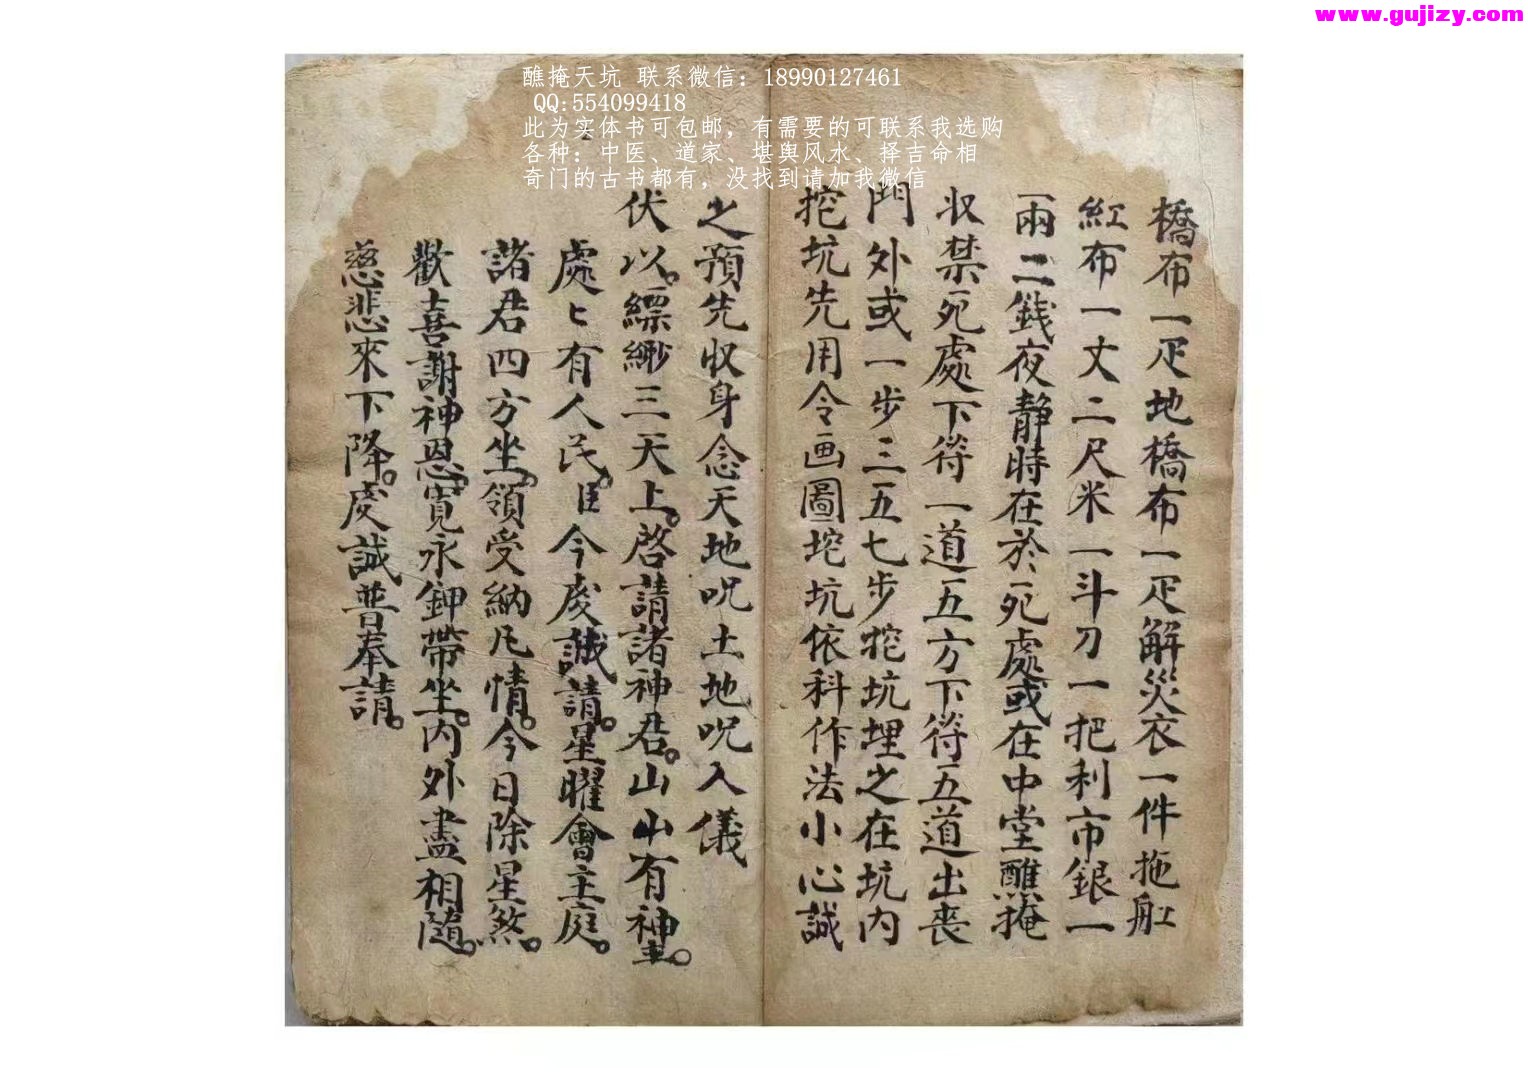 www.gujizy.com
醮掩天坑 联系微信：18990127461
QQ:554099418
此为实体书可包邮，有需要的可联系我选购
各种：中医、道家、堪舆风水、择吉命相
奇门的古书都有，没找到请加我微信
橋布一疋地橋布一疋解災衣一件拖舡
紅布一丈二尺米一斗刀一把利市銀一
両二錢夜静時在於死處或在中堂醮掩
収禁死處下符一道五方下符五道出丧
門外或一步三五七步挖坑埋之在坑内
挖坑先用令画圖挖坑依科作法小心誠
之預先収身念天地呪土地呪入儀
伏以縹緲三天上。啓請諸神君。山山有神主。
處〻有人民。臣今虔誠請。星曜會主庭。
諸君四方坐。領受納凡情。今日除星煞。
歡喜謝神恩。寛永鉀帶坐。内外盡相隨。
慈悲來下降。虔誠普奉請。